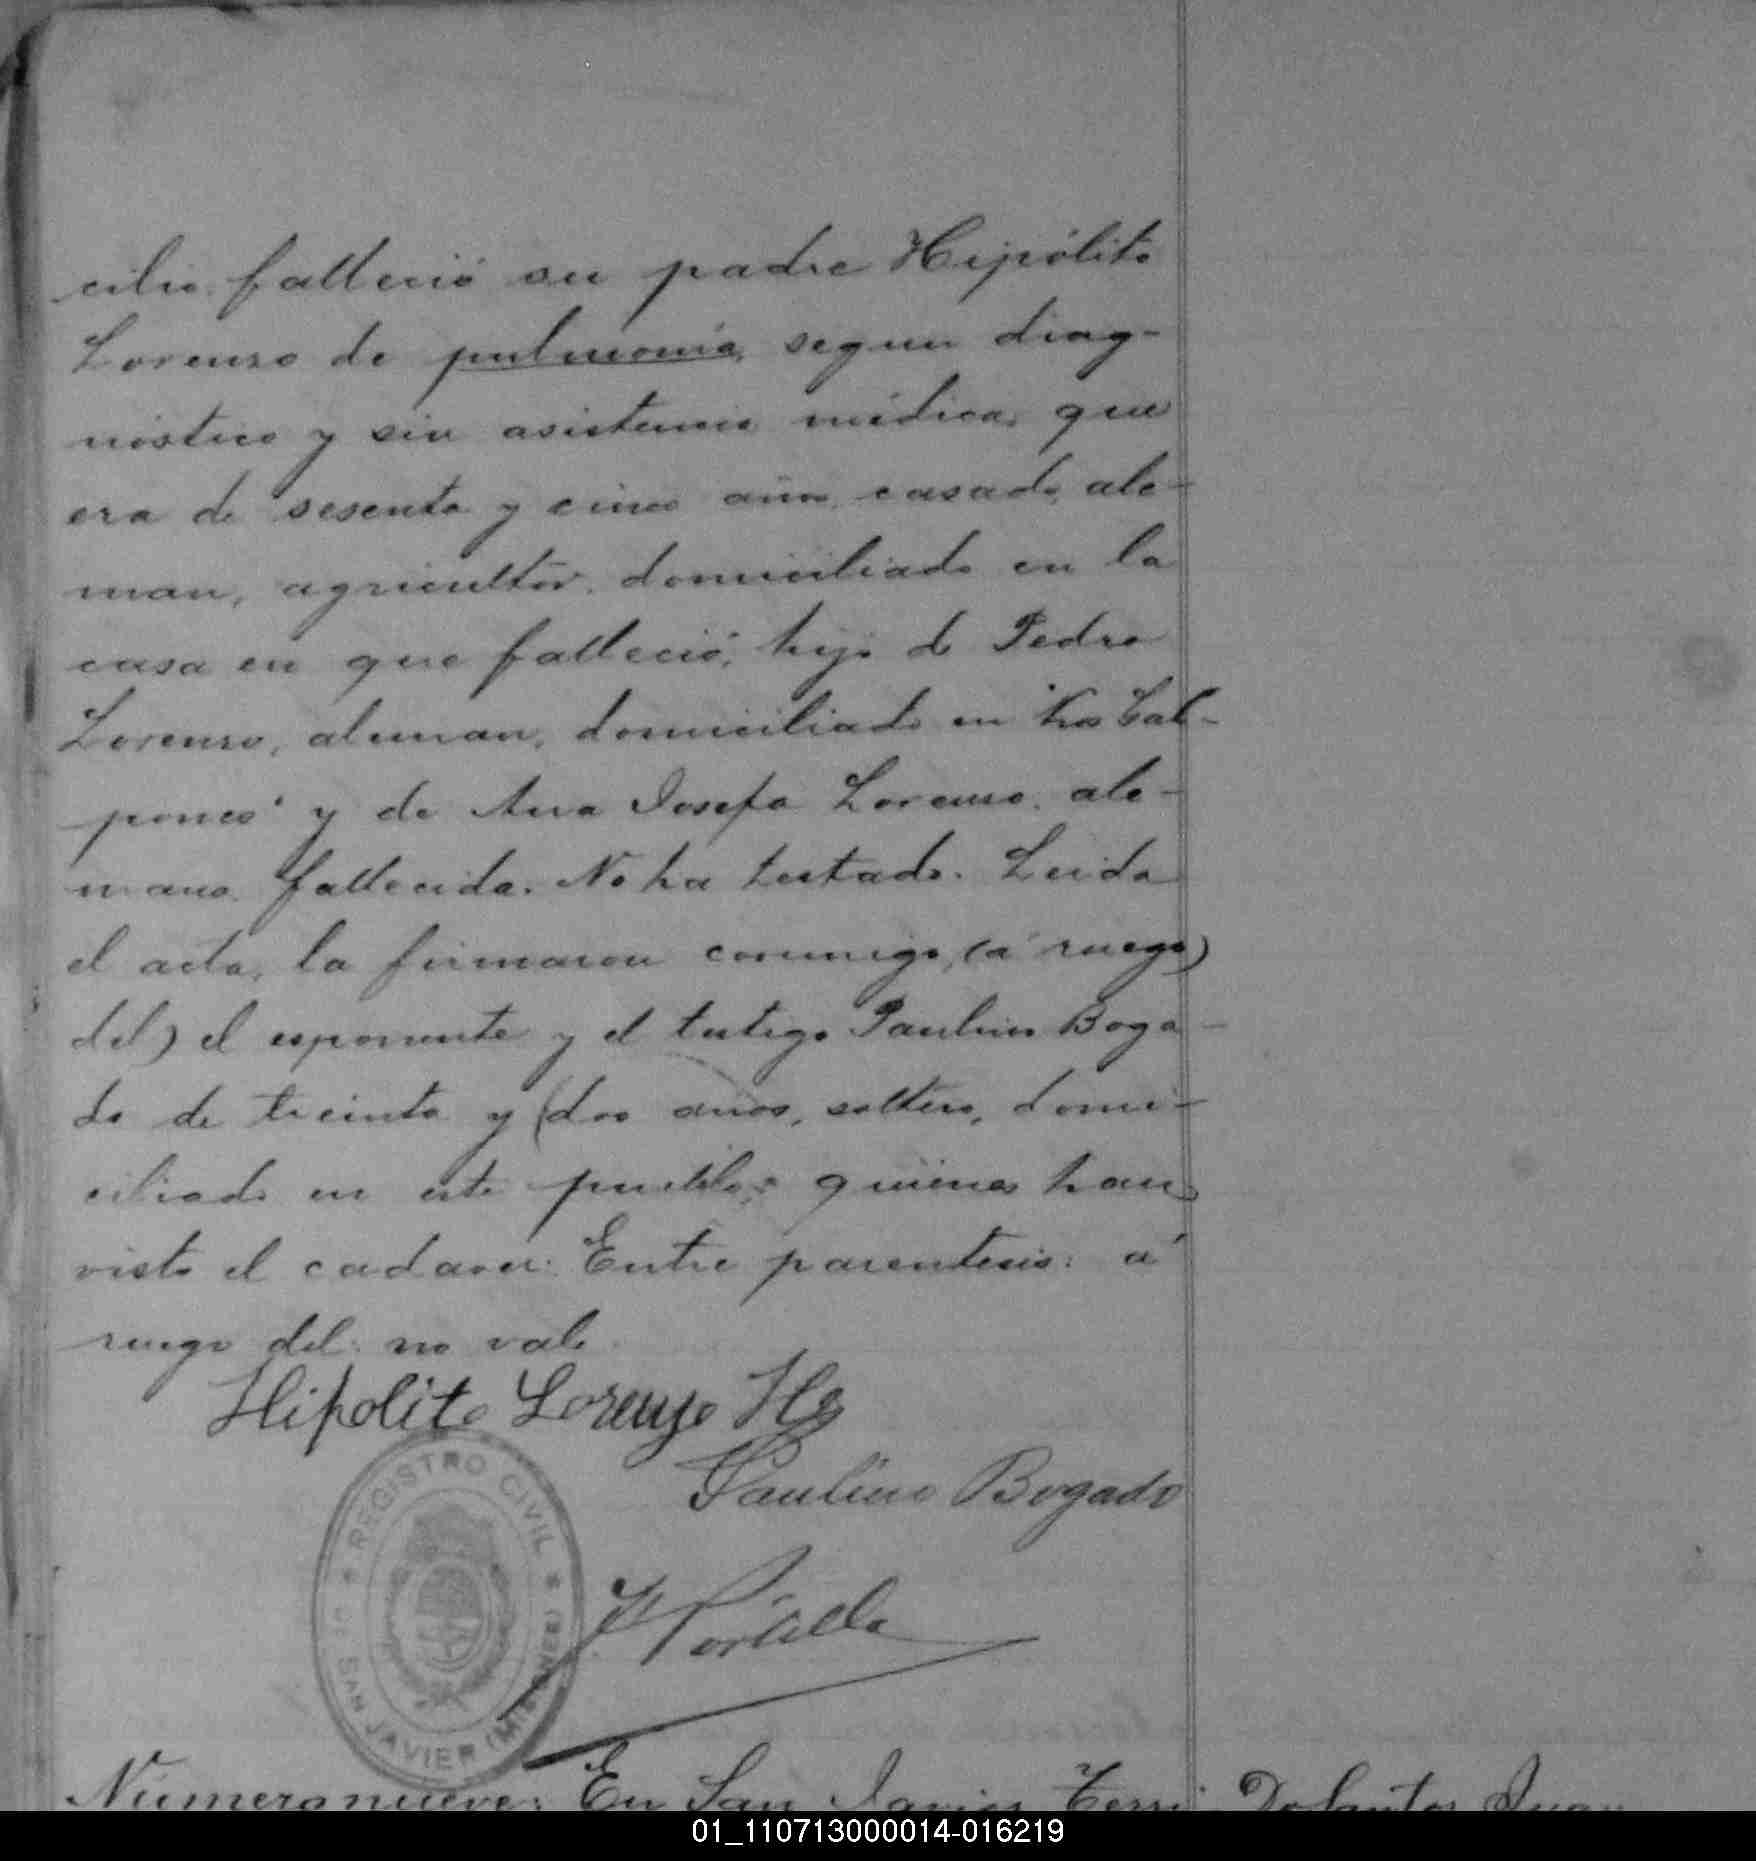 cilio falleció su padre Hipólito
Lorenso de pulmonía, segun diag-
nóstico y sin asistencia médica, que
era de sesenta y cinco años, casado, ale-
man, agricultor, domiciliado en la
casa en que falleció, hijo de Pedro
Lorenso, aleman, domiciliado en "Los Gal-
pones" y de Ana Josefa Lorenso, ale-
mana, fallecida. No ha testado. Leida
el acta, la firmaron conmigo, (á ruego)
del) el esponente y el testigo Paulino Boga-
do de treinta y (dos años, soltero, domi-
ciliado en este pueblo, quienes han
visto el cadaver. Entre parentesis: á
ruego del: no vale
Hipolito Lorenzo
Paulino Bogado
REGISTRO CIVIL
SAN JAVIER (MISIONES)
Numero nueve: En San Javier, Terri
01_110713000014-016219